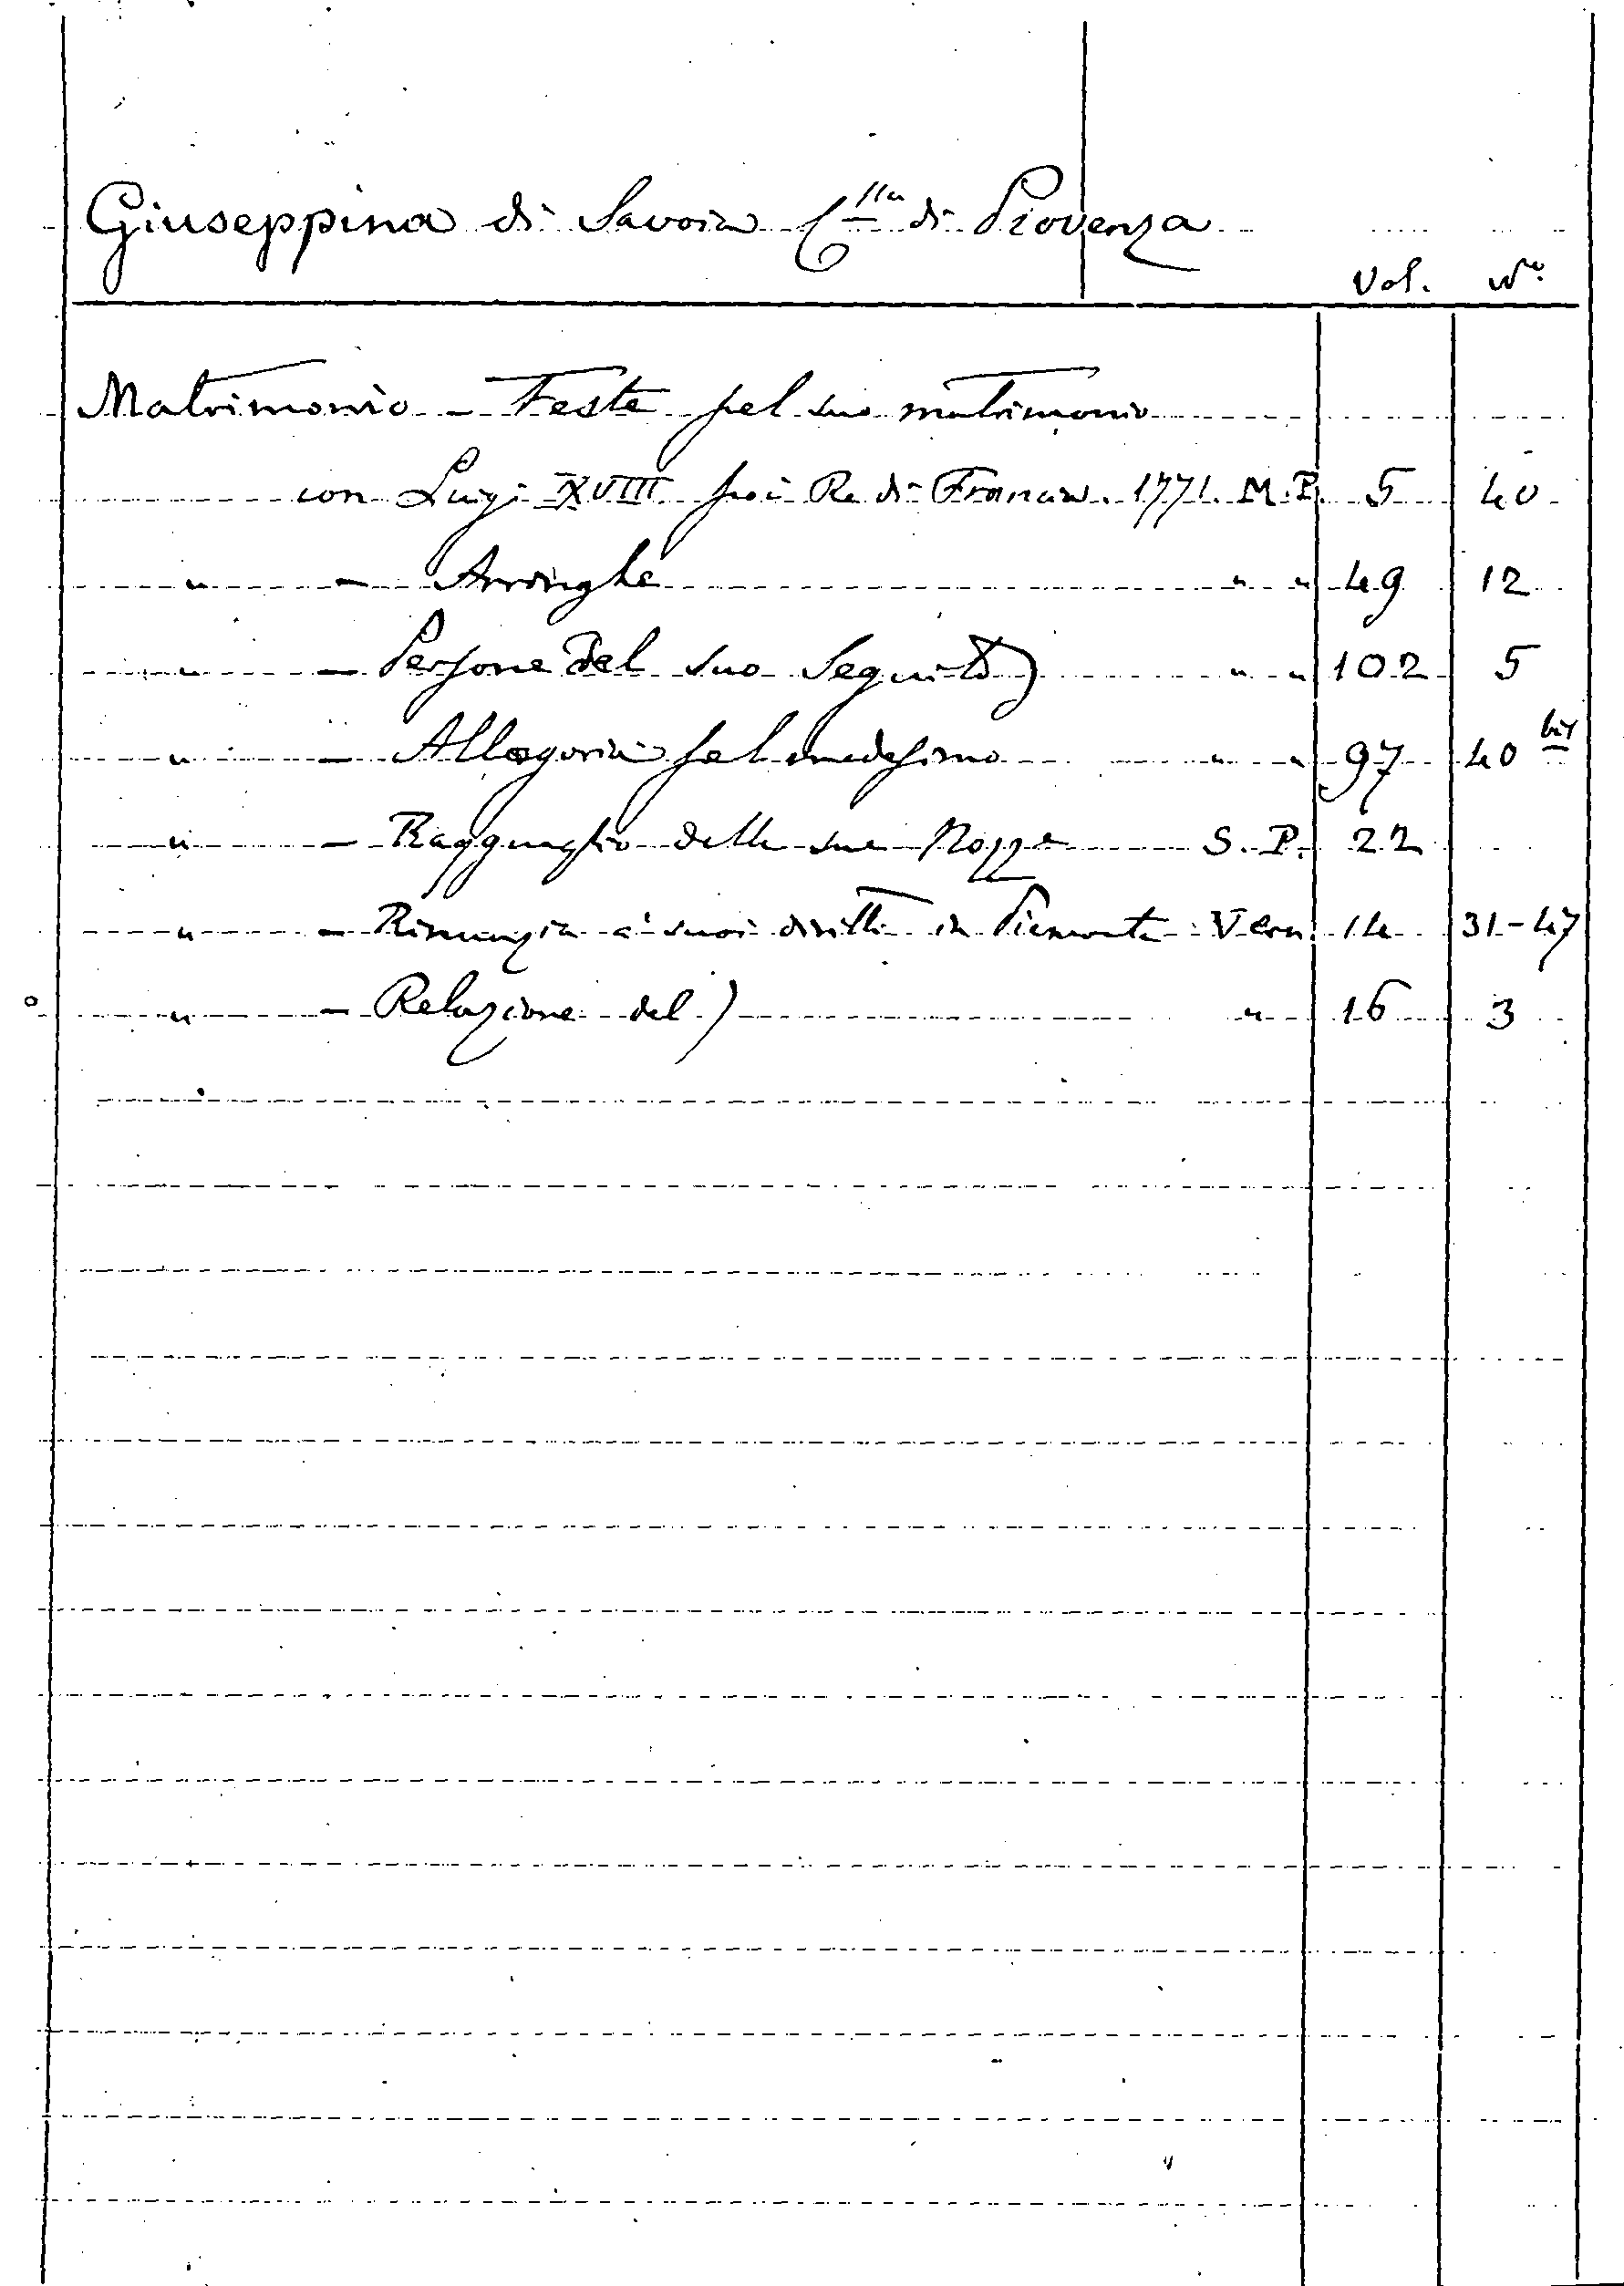 Giuseppina di Savoia C.ssa di Provenza
Vol. No.
Matrimonio - Feste pel suo matrimonio
con Luigi XVIII poi Re di Francia. 1771. M.P. 5 40
" - Arringhe " " 49 12
" - Persone del suo seguito) " " 102 5
" - Allegoria pel medesimo " " 97 40 bis
" - Ragguaglio delle sue Nozze S.P. 22
" - Rinunzia a' suoi diritti in Piemonte Vern. 14 31-47
" - Relazione del) " 16 3